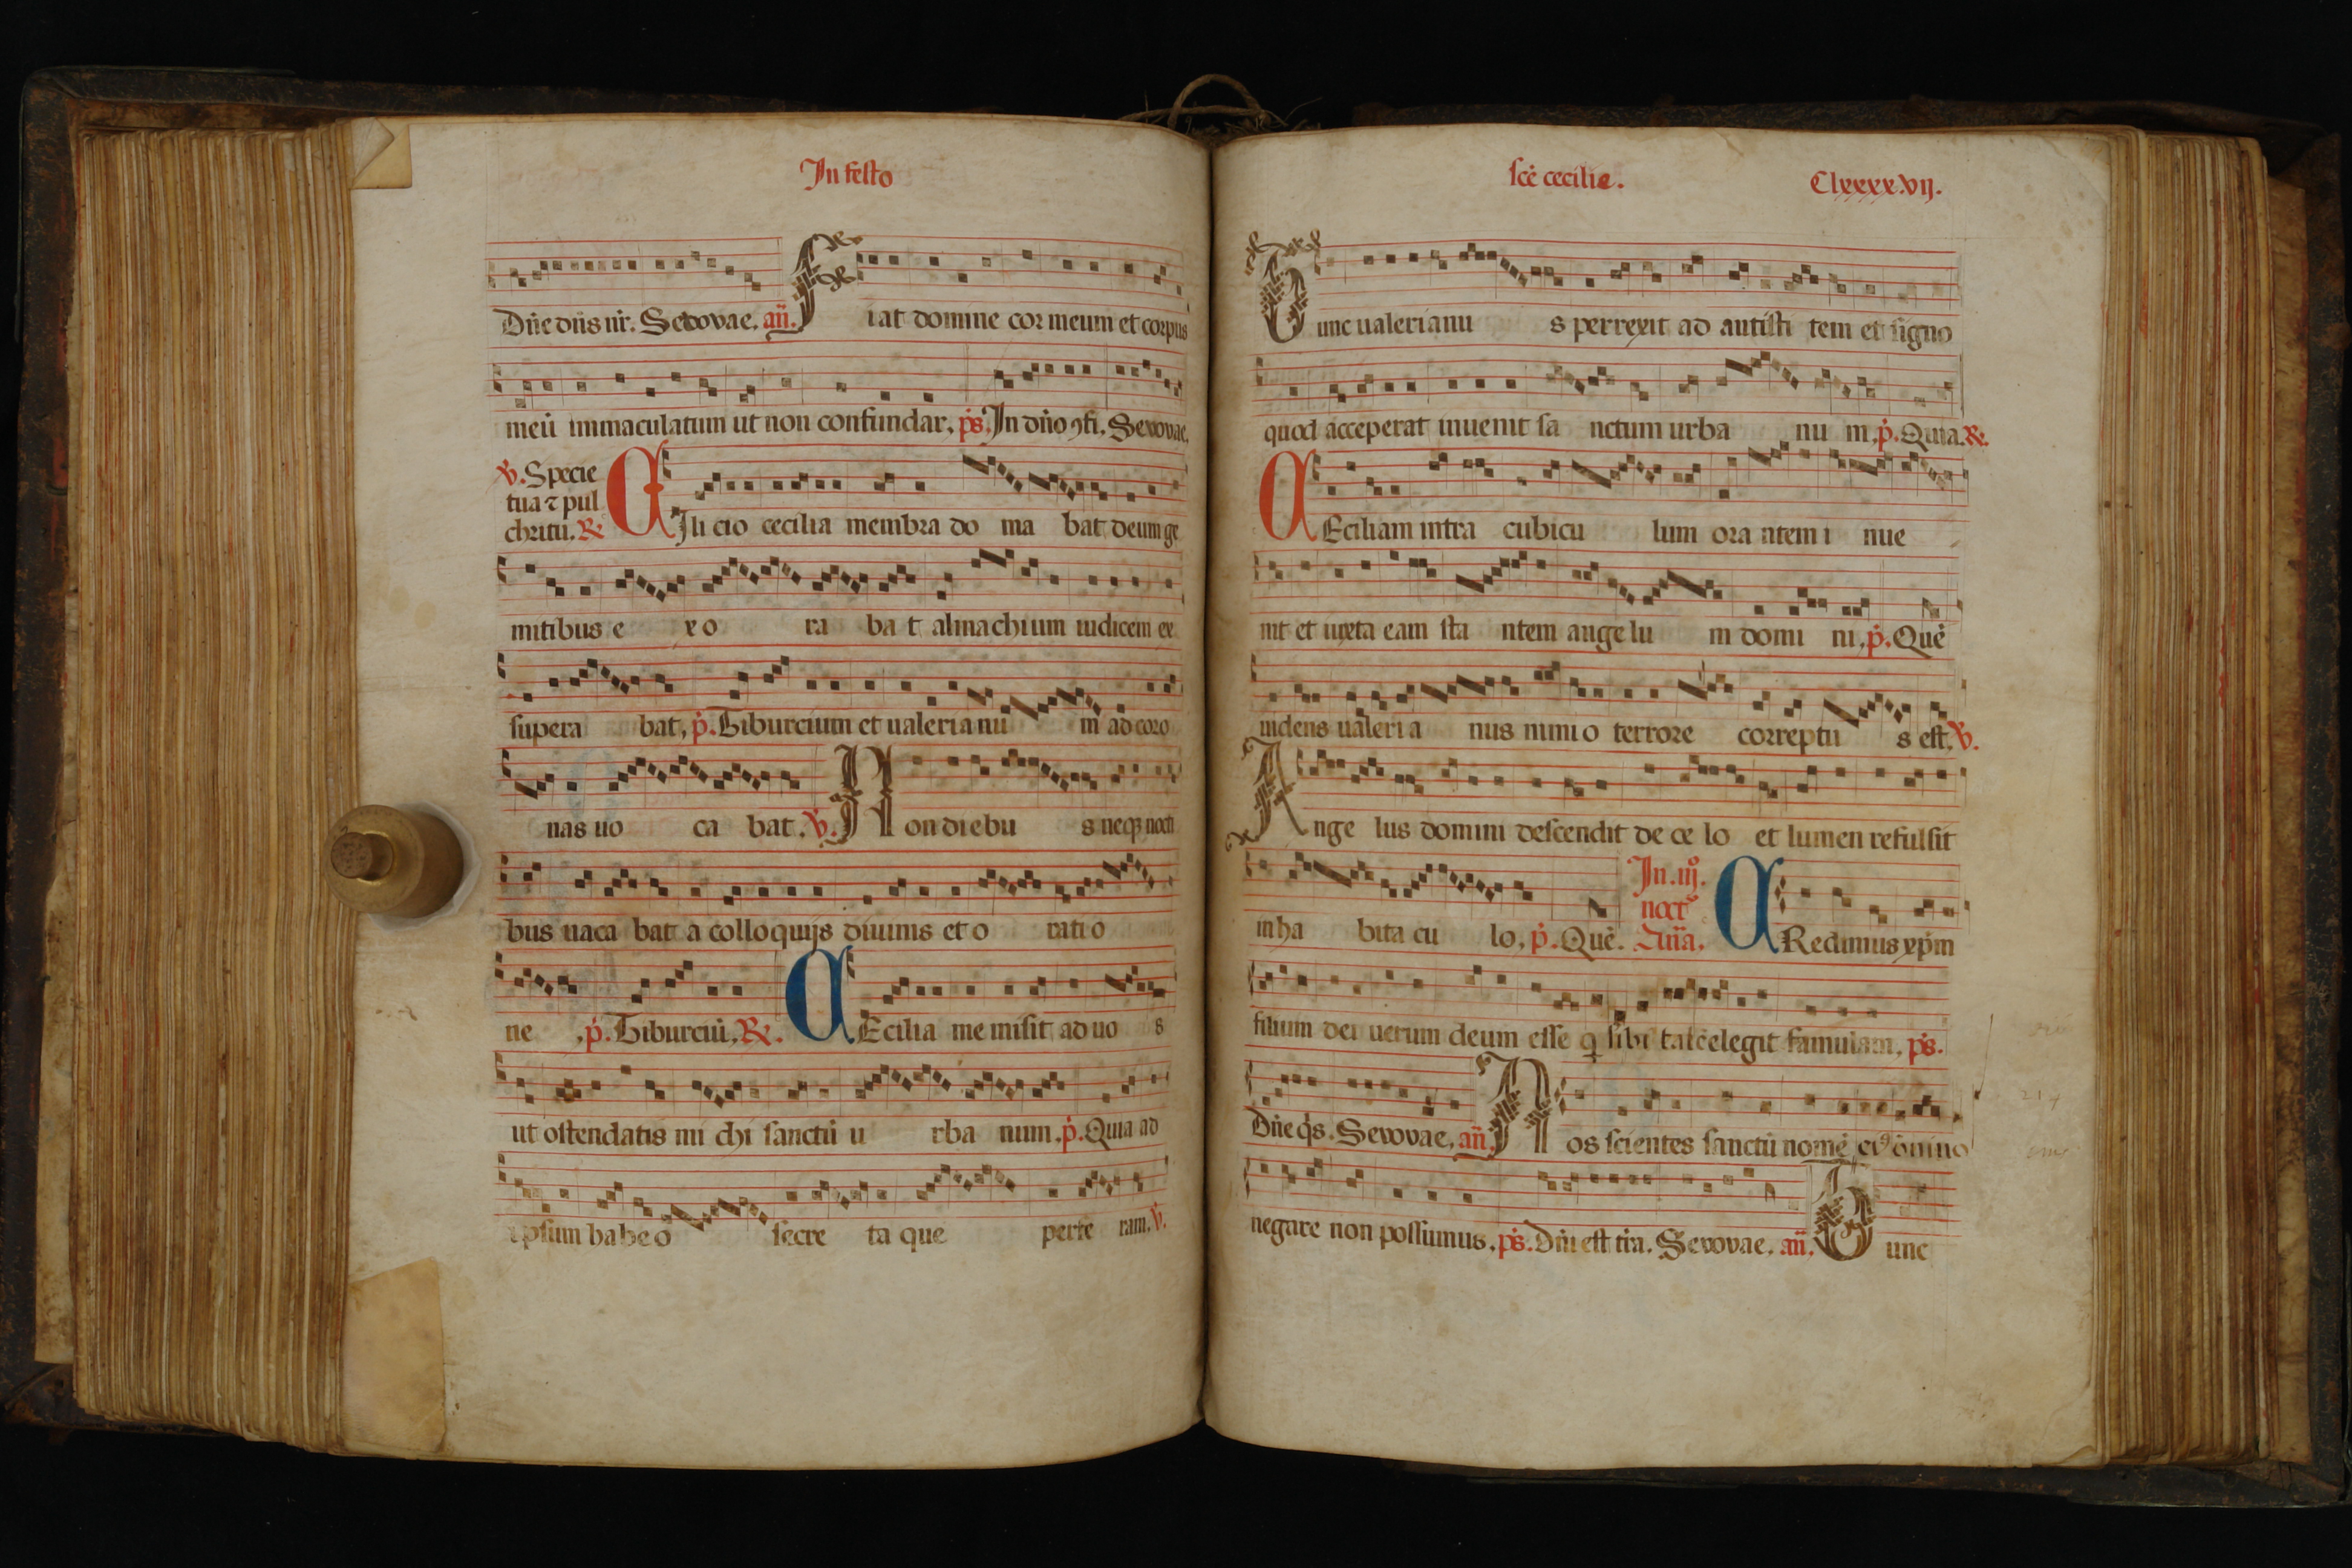 In festo
Dñe dñs nr̄. Seuouae. añ. Fiat domine cor meum et corpus
meū immaculatum ut non confundar, p̄s. In dño ꝯfi. Seuouae.
℣. Specie
tua ⁊ pul
chritu. ℟
CIlicio cecilia membra do ma bat deum ge
mitibus e xo ra ba t almachium iudicem ex
supera bat, p̄. Tiburcium et ualerianu m ad coro
nas uo ca bat. ℣. Non diebu s neqꝫ nocti
bus uaca bat a colloquijs diuinis et o ratio
ne , p̄. Tiburciū, ℟. CEcilia me misit ad uo s
ut ostendatis mi chi sanctū u rba num. p̄. Quia ad
ipsum habeo secre ta que perfe ram. ℣.
sc̄e cecilie. Clxxxxvij.
Tunc ualerianu s perrexit ad antisti tem et signo
quod acceperat inuenit sa nctum urba nu m, p̄. Quia. ℟.
CEciliam intra cubicu lum ora ntem i nue
nit et iuxta eam sta ntem angelu m domi ni, p̄. Quē
uidens ualeri a nus nimio terrore correptu s est, ℣.
Ange lus domini descendit de ce lo et lumen refulsit
in ha bita cu lo, p̄. Quē. In .iij. noct̄ Añā. CRedimus xp̄m
filium dei uerum deum esse q̄ sibi talē elegit famulam, p̄s.
Dñe q̄s. Seuouae, añ. Nos scientes sanctū nomē eiꝰ om̄ino
negare non possumus, p̄s. Dñi est tr̄a. Seuouae. añ. Tunc